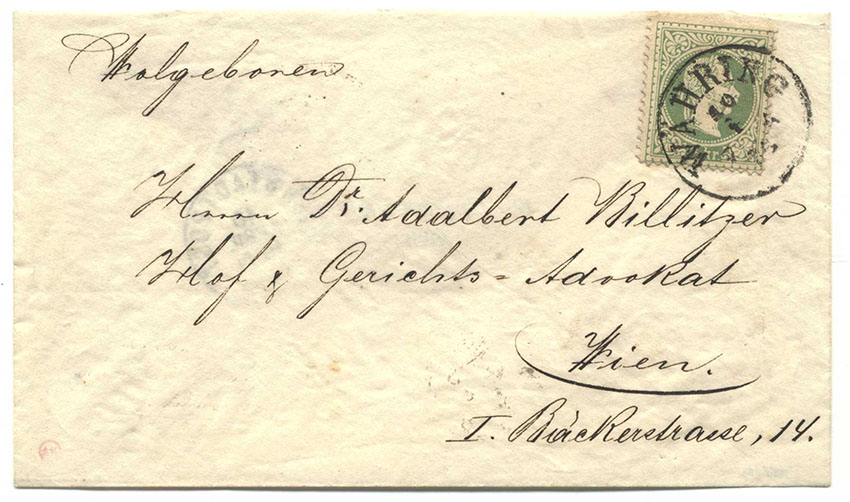 Wolgeboren
WAHRING
19
Herrn Dr. Adalbert Billitzer
Hof & Gerichts=Advokat
Wien.
I. Bäckerstrasse, 14.